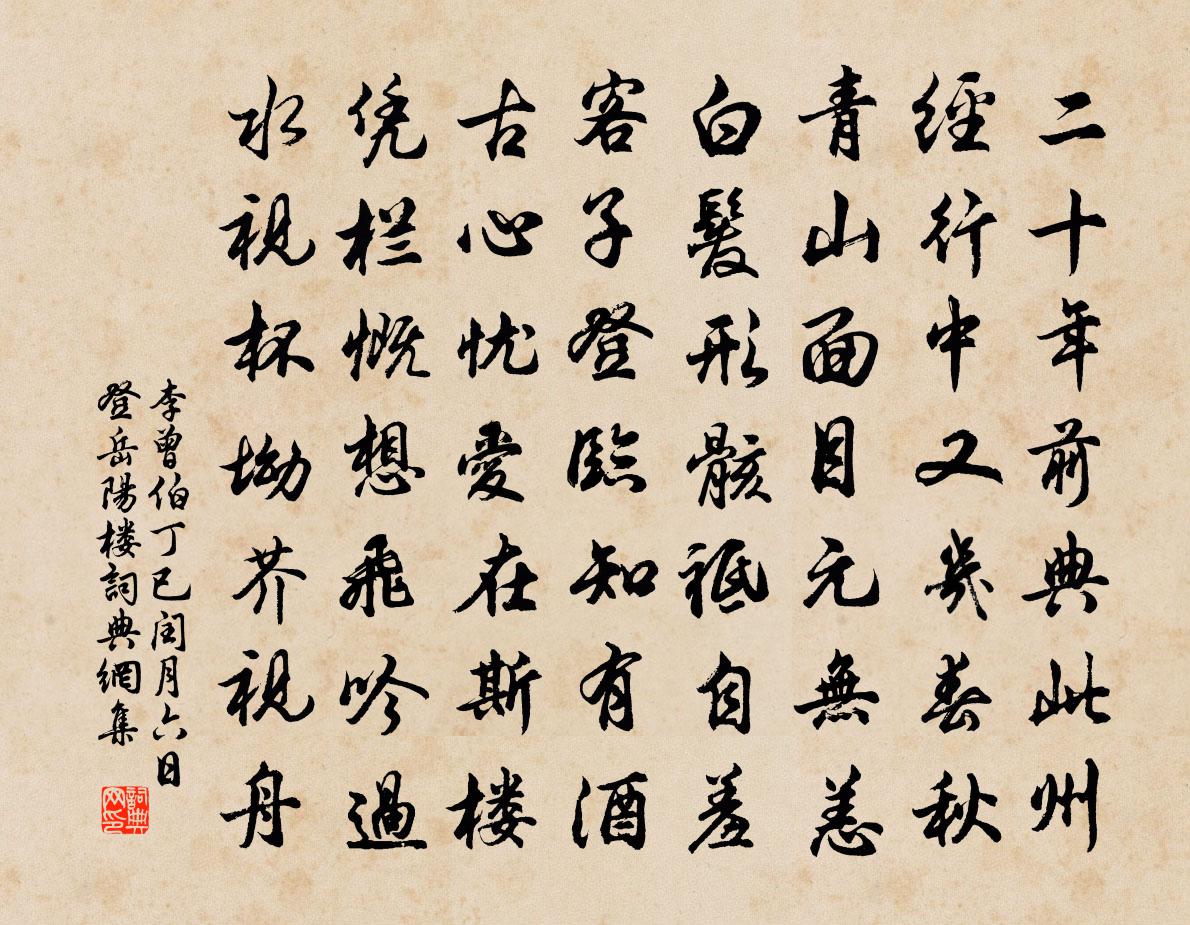 二十年前典此州
經行中又幾春秋
青山面目元無恙
白髮形骸祗自羞
客子登臨知有酒
古心忧愛在斯楼
凭栏慨想飛吟過
水視杯坳芥視舟
李曾伯丁巳闰月六日
登岳陽楼詞典網集
詞典
网印